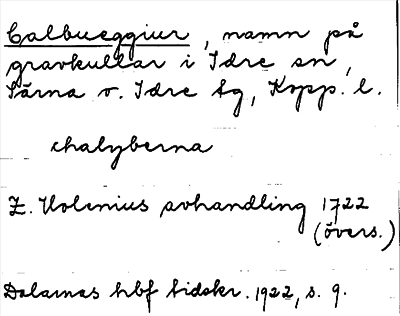 Calbueggiur, namn på
gravkullar i Idre sn,
Särna o. Idre tg, Kopp. l.
chalyberna
Z. Holenius avhandling 1722
(övers.)
Dalarnas hbf tidskr. 1922, s. 9.